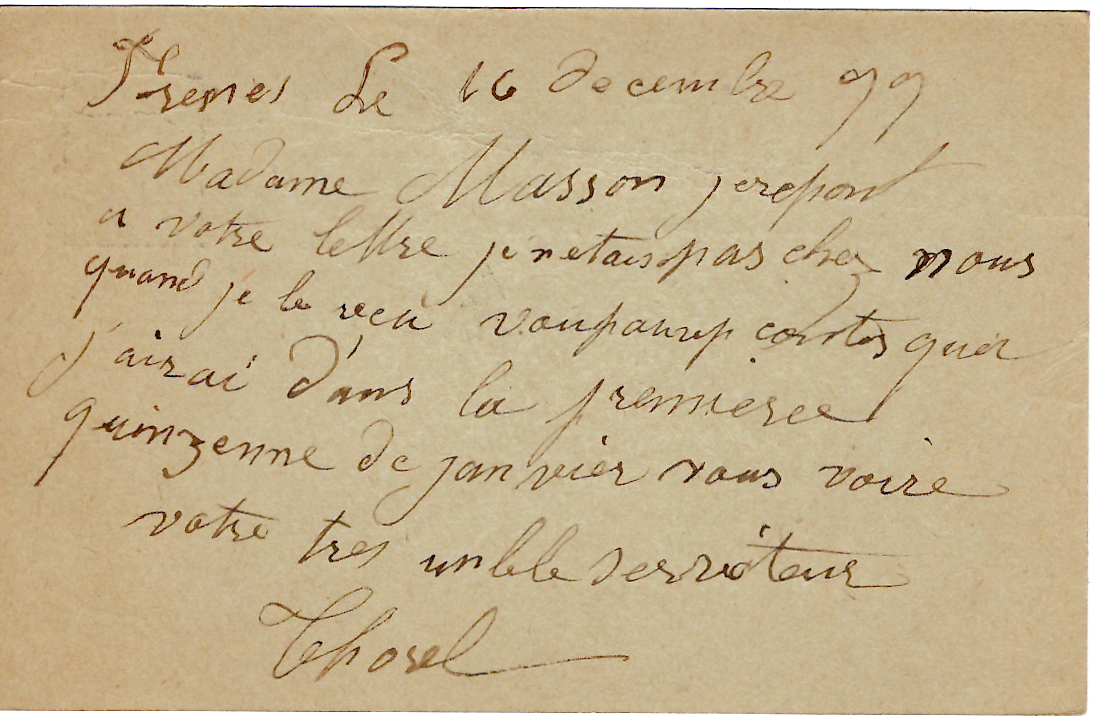 Le 16 decembre 99
Madame Masson jerepont
a votre lettre je netais pas chez nous
quand je le recu voupourép contés quer
j'airai d'ans la premieree
quinzenne de janvier vous voire
votre tres unble serviteur
Thorel